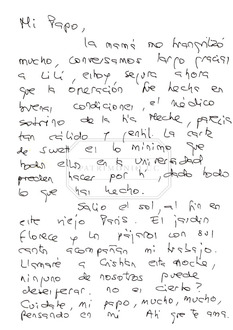 Mi Papo,
La mamá me tranquilizó
mucho, conversamos largo gracias
a Lilí, estoy segura ahora
que la operación fue hecha en
buenas condiciones, el médico
sobrino de la tía Meche, parecía
tan cálido y gentil. La carta
de Swett es lo mínimo que
todos ellos en la universidad
pueden hacer por ti, dado todo
lo que has hecho.
Salió el sol, al fin en
este viejo París. El jardín
florece y los pájaros con su
canto acompañan mi trabajo.
Llamaré a Cristián esta noche,
ninguno de nosotros puede
desesperar. no es cierto?
Cuídate, mi papo, mucho, mucho,
pensando en mí Ahí que te ama.